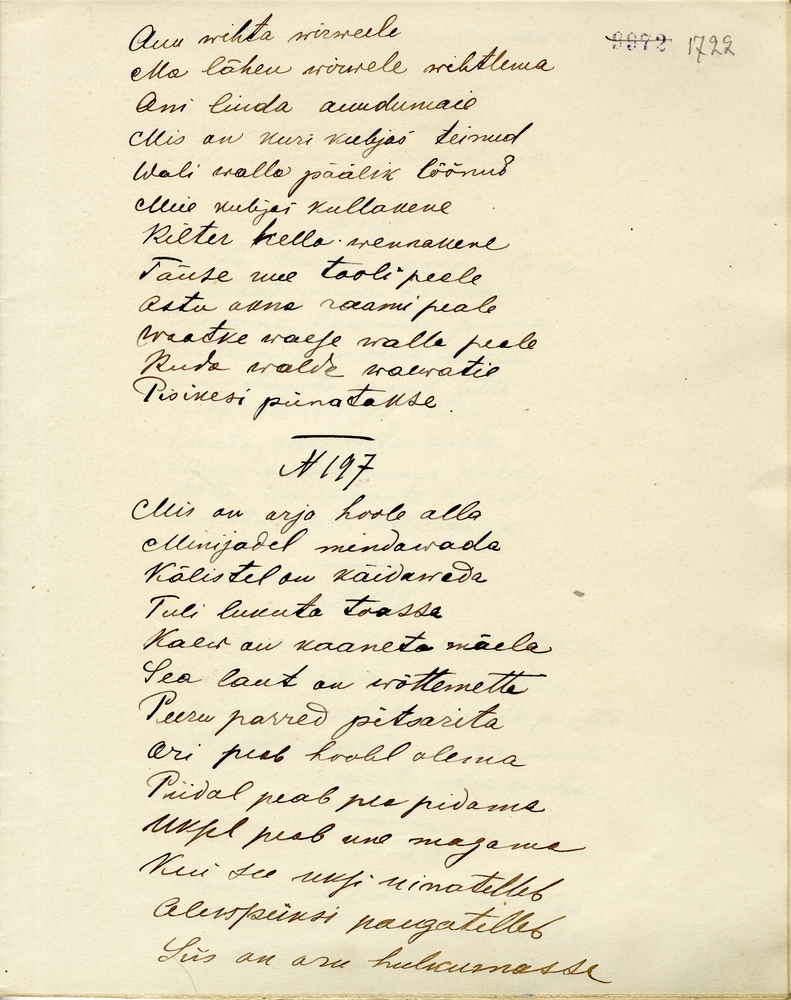 9972 1722
Anu wihta wirweele
Ma lähen wirwele wihtlema
Ani linda aundumaie
Mis on kuri kubjas teinud
Wali walla päälik löönud
Meie kubjas kullakene
Kilter hella wennakene
Täuse me tooli peele
Astu akna raami peale
Waatke waese walla peale
Kuda walda waewatie
Pisikesi piinatakse.
N 197
Mis on orja hoole alla
Minijadel mindawada
Kälistel on käidawada
Tuli lukuta toassa
Kaew on kaaneta mäela
Sea laut on wõttemetta
Peeru parred pitsarita
Ori peab hoolil olema
Piidal peab pea pidama
Uksel peab une magama
Kui see uksi ninatelleb
Alewpiiksi paugatelleb
Siis on oru hulkumassa